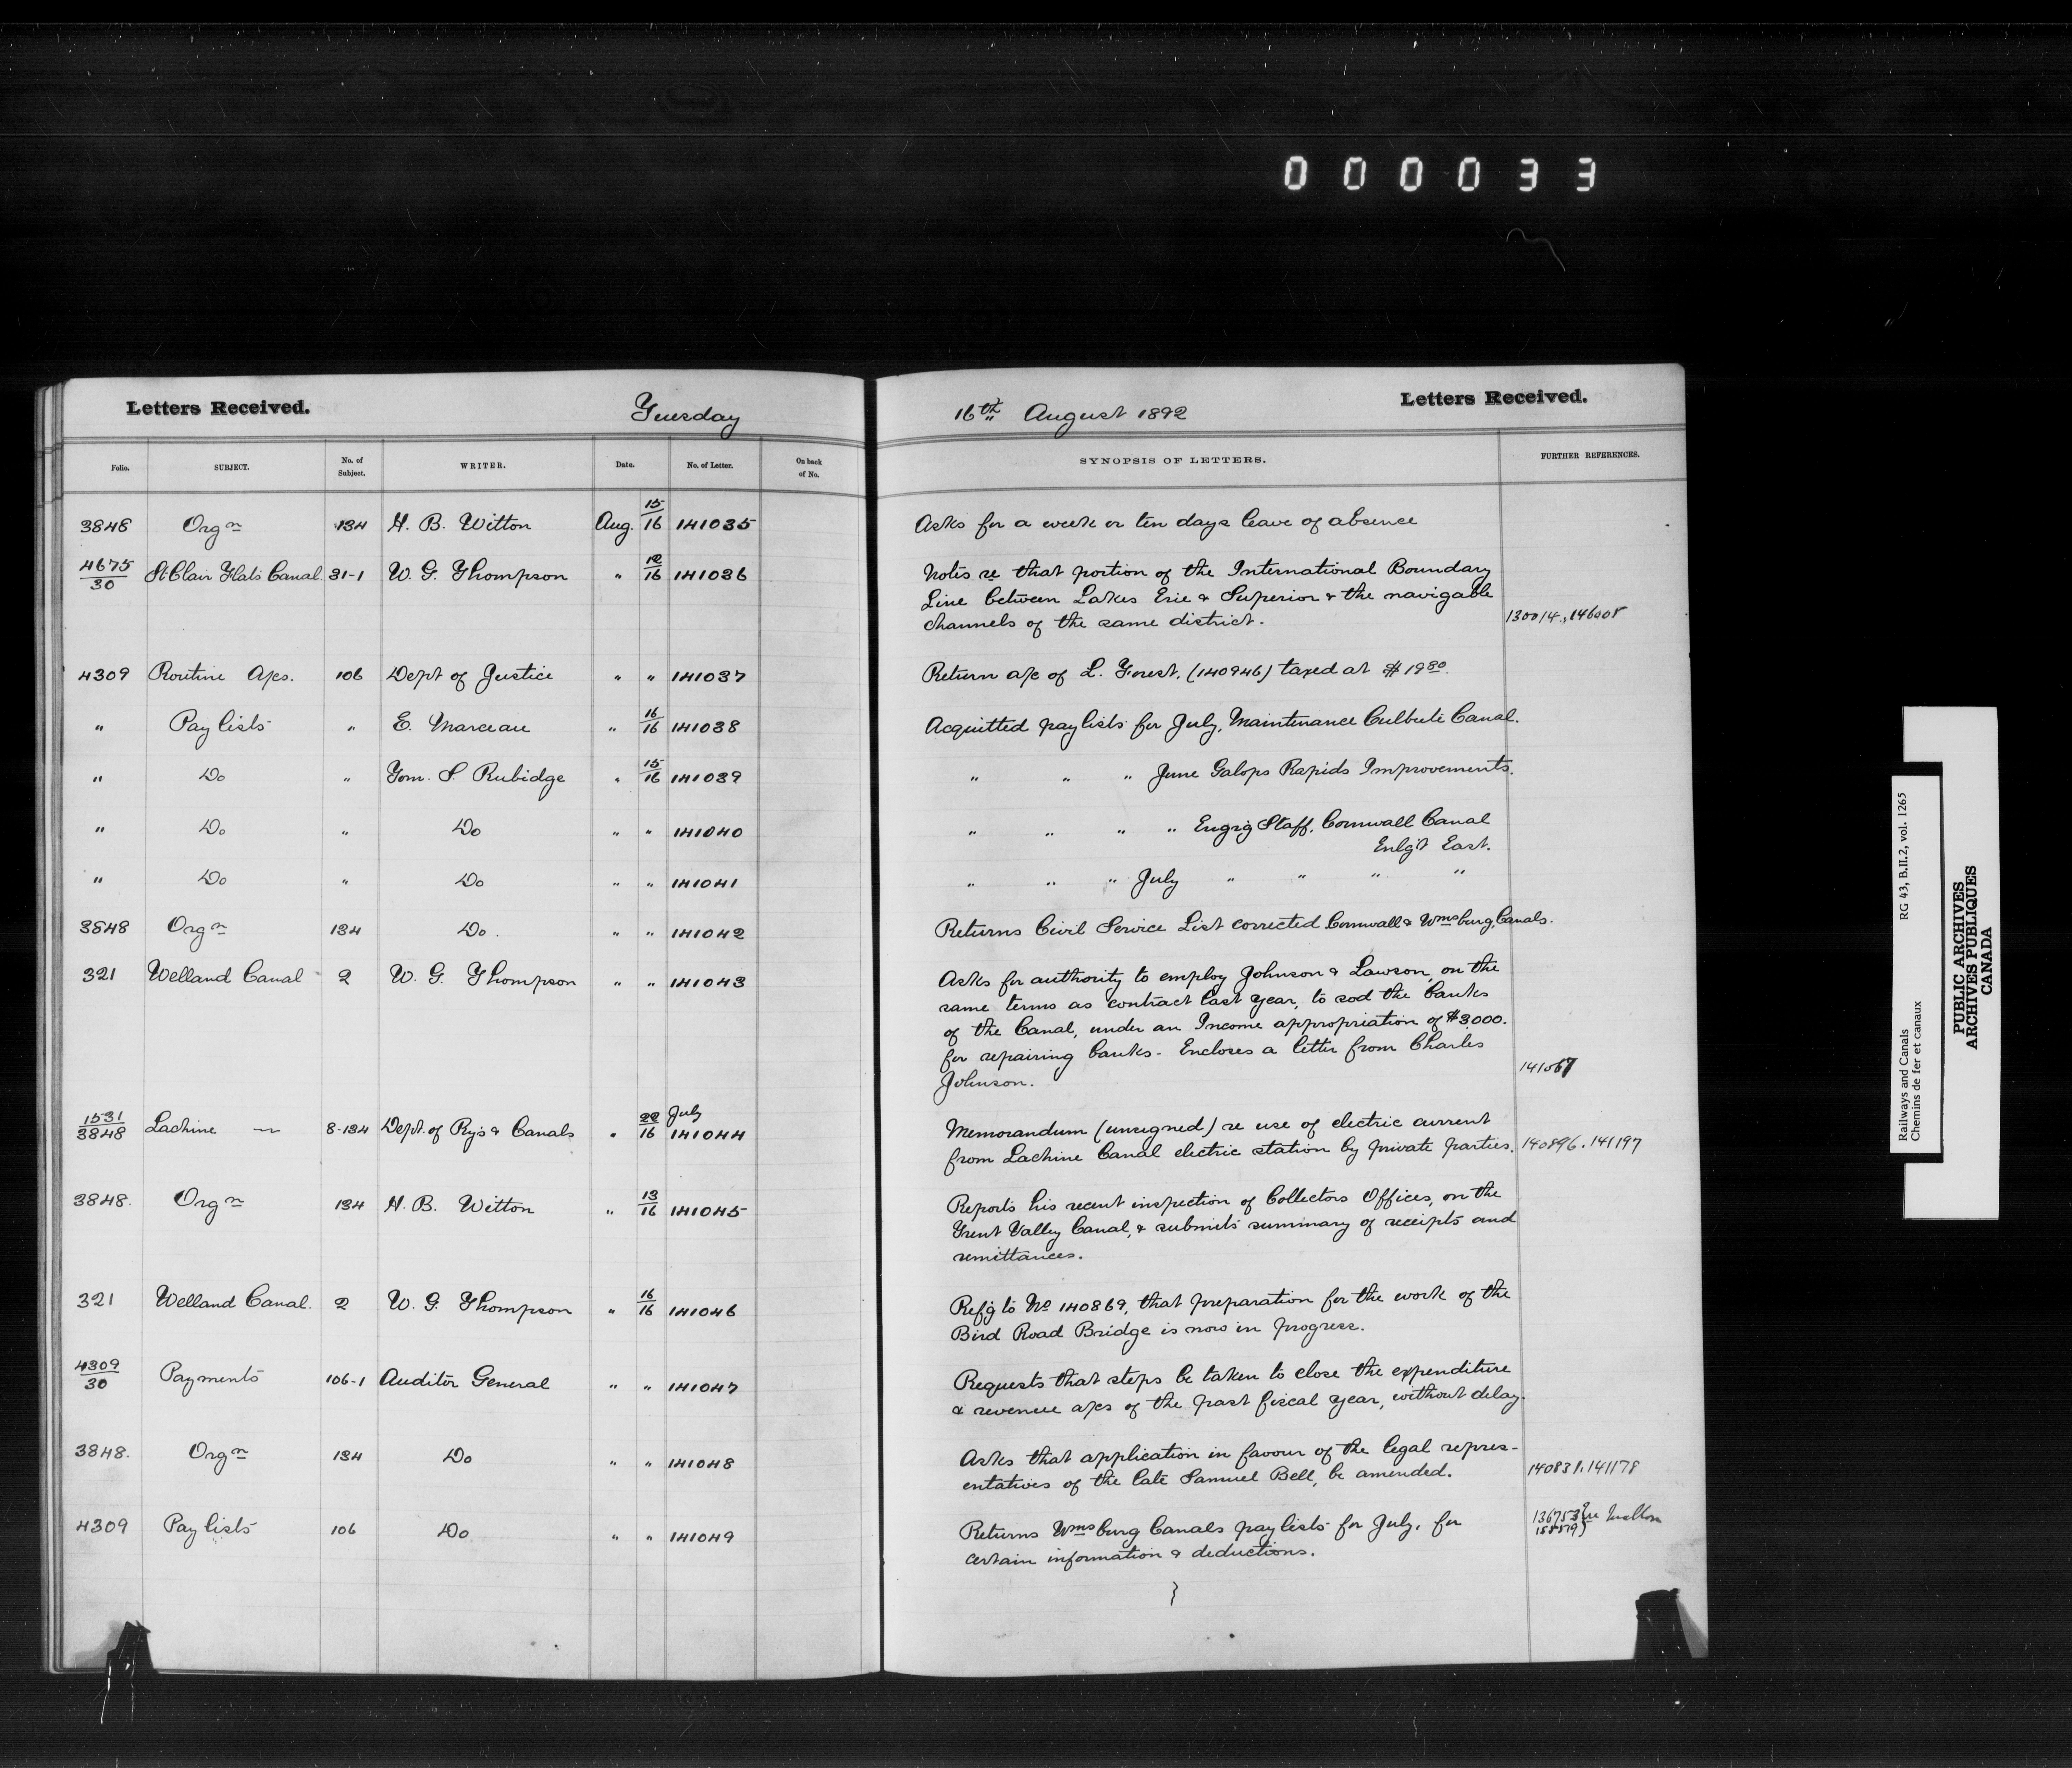 000033
Letters Received. Tuesday 16th August 1892 Letters Received.
Folio. SUBJECT. No. of Subject. WRITER. Date. No. of Letter. On back of No. SYNOPSIS OF LETTERS. FURTHER REFERENCES.
3848 Orgn 134 H. B. Witton Aug. 15/16 141035 Asks for a week or ten days leave of absence
4675/30 St Clair Flats Canal 31-1 W. G. Thompson " 12/16 141036 Notes re that portion of the International Boundary
Line between Lakes Erie & Superior & the navigable
channels of the same district. 130014., 146008
4309 Routine A/cs. 106 Dept of Justice " " 141037 Return a/c of L. Forest, (140946) taxed at $19 80.
" Pay lists " E. Marceau " 16/16 141038 Acquitted pay lists for July, Maintenance Culbute Canal.
" Do " Tom. S. Rubidge " 15/16 141039 " " " June Galops Rapids Improvements.
" Do " Do " " 141040 " " " " Engrg Staff, Cornwall Canal
Enlg't East.
" Do " Do " " 141041 " " " July " " " "
3848 Orgn 134 Do. " " 141042 Returns Civil Service List corrected Cornwall & Wmsburg, Canals.
321 Welland Canal 2 W. G. Thompson " " 141043 Asks for authority to employ Johnson & Lawson, on the
same terms as contract last year, to sod the banks
of the Canal, under an Income appropriation of $3000.
for repairing banks - Encloses a letter from Charles
Johnson. 141067
1531/3848 Lachine — 8-134 Dept. of Rys & Canals " 22/16 July 141044 Memorandum (unsigned) re use of electric current
from Lachine Canal electric station by private parties. 140896. 141197
3848. Orgn 134 H. B. Witton " 13/16 141045 Reports his recent inspection of Collectors Offices, on the
Trent Valley Canal, & submits summary of receipts and
remittances.
321 Welland Canal. 2 W. G. Thompson " 16/16 141046 Ref'g to No 140869, that preparation for the work of the
Bird Road Bridge is now in progress.
4309/30 Payments 106-1 Auditor General " " 141047 Requests that steps be taken to close the expenditure
& revenue a/cs of the past fiscal year, without delay.
3848. Orgn 134 Do " " 141048 Asks that application in favour of the legal repres-
entatives of the late Samuel Bell, be amended. 140831. 141178
4309 Pay lists 106 Do " " 141049 Returns Wmsburg Canals pay lists for July, for 136753
certain information & deductions.
Railways and Canals RG 43, B.II.2, vol. 1265
Chemins de fer et canaux
PUBLIC ARCHIVES
ARCHIVES PUBLIQUES
CANADA